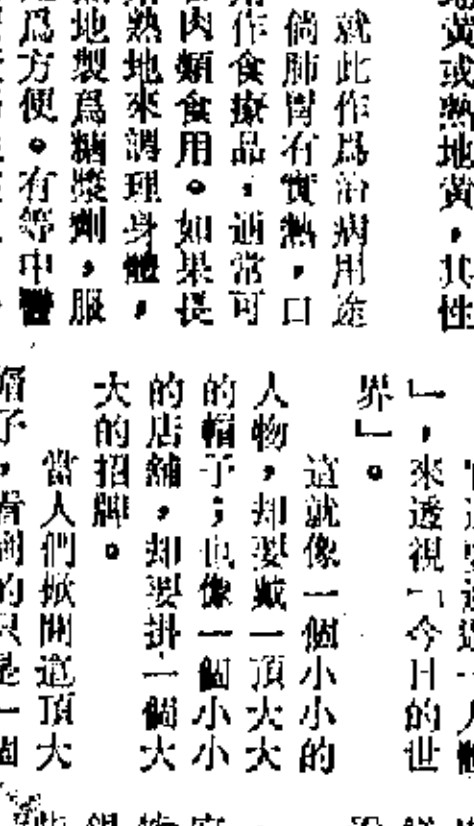 地黃或熟地黃，其性
就此作爲治病用途
倘肺胃有實熱，口
作食療品，通常可
肉類食用。如果長
熟地來調理身體，
地製爲糖漿劑，服
爲方便。有等中醫
」，來透視「今日的世
界」。
這就像一個小小的
人物，却要戴一頂大大
的帽子；也像一個小小
的店舖，却要掛一個大
大的招牌。
當人們掀開這頂大
帽子，看到的只是一個